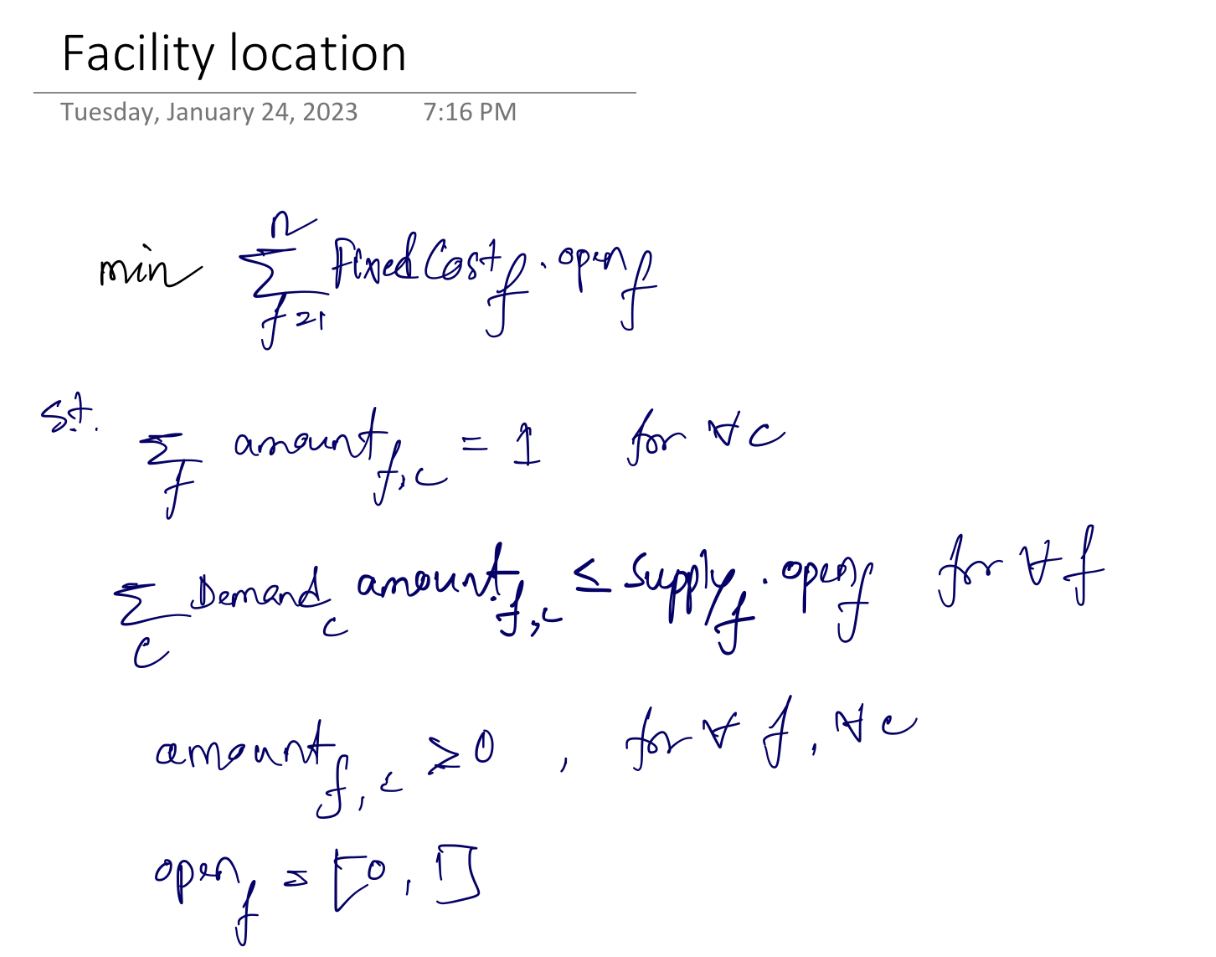 Facility location
Tuesday, January 24, 2023 7:16 PM
min ∑_{f=1}^{n} Fixed Cost_f · open_f
s.t. ∑_f amount_{f,c} = 1 for ∀c
∑_c Demand_c amount_{f,c} ≤ Supply_f · open_f for ∀f
amount_{f,c} ≥ 0 , for ∀ f, ∀c
open_f = [0, 1]